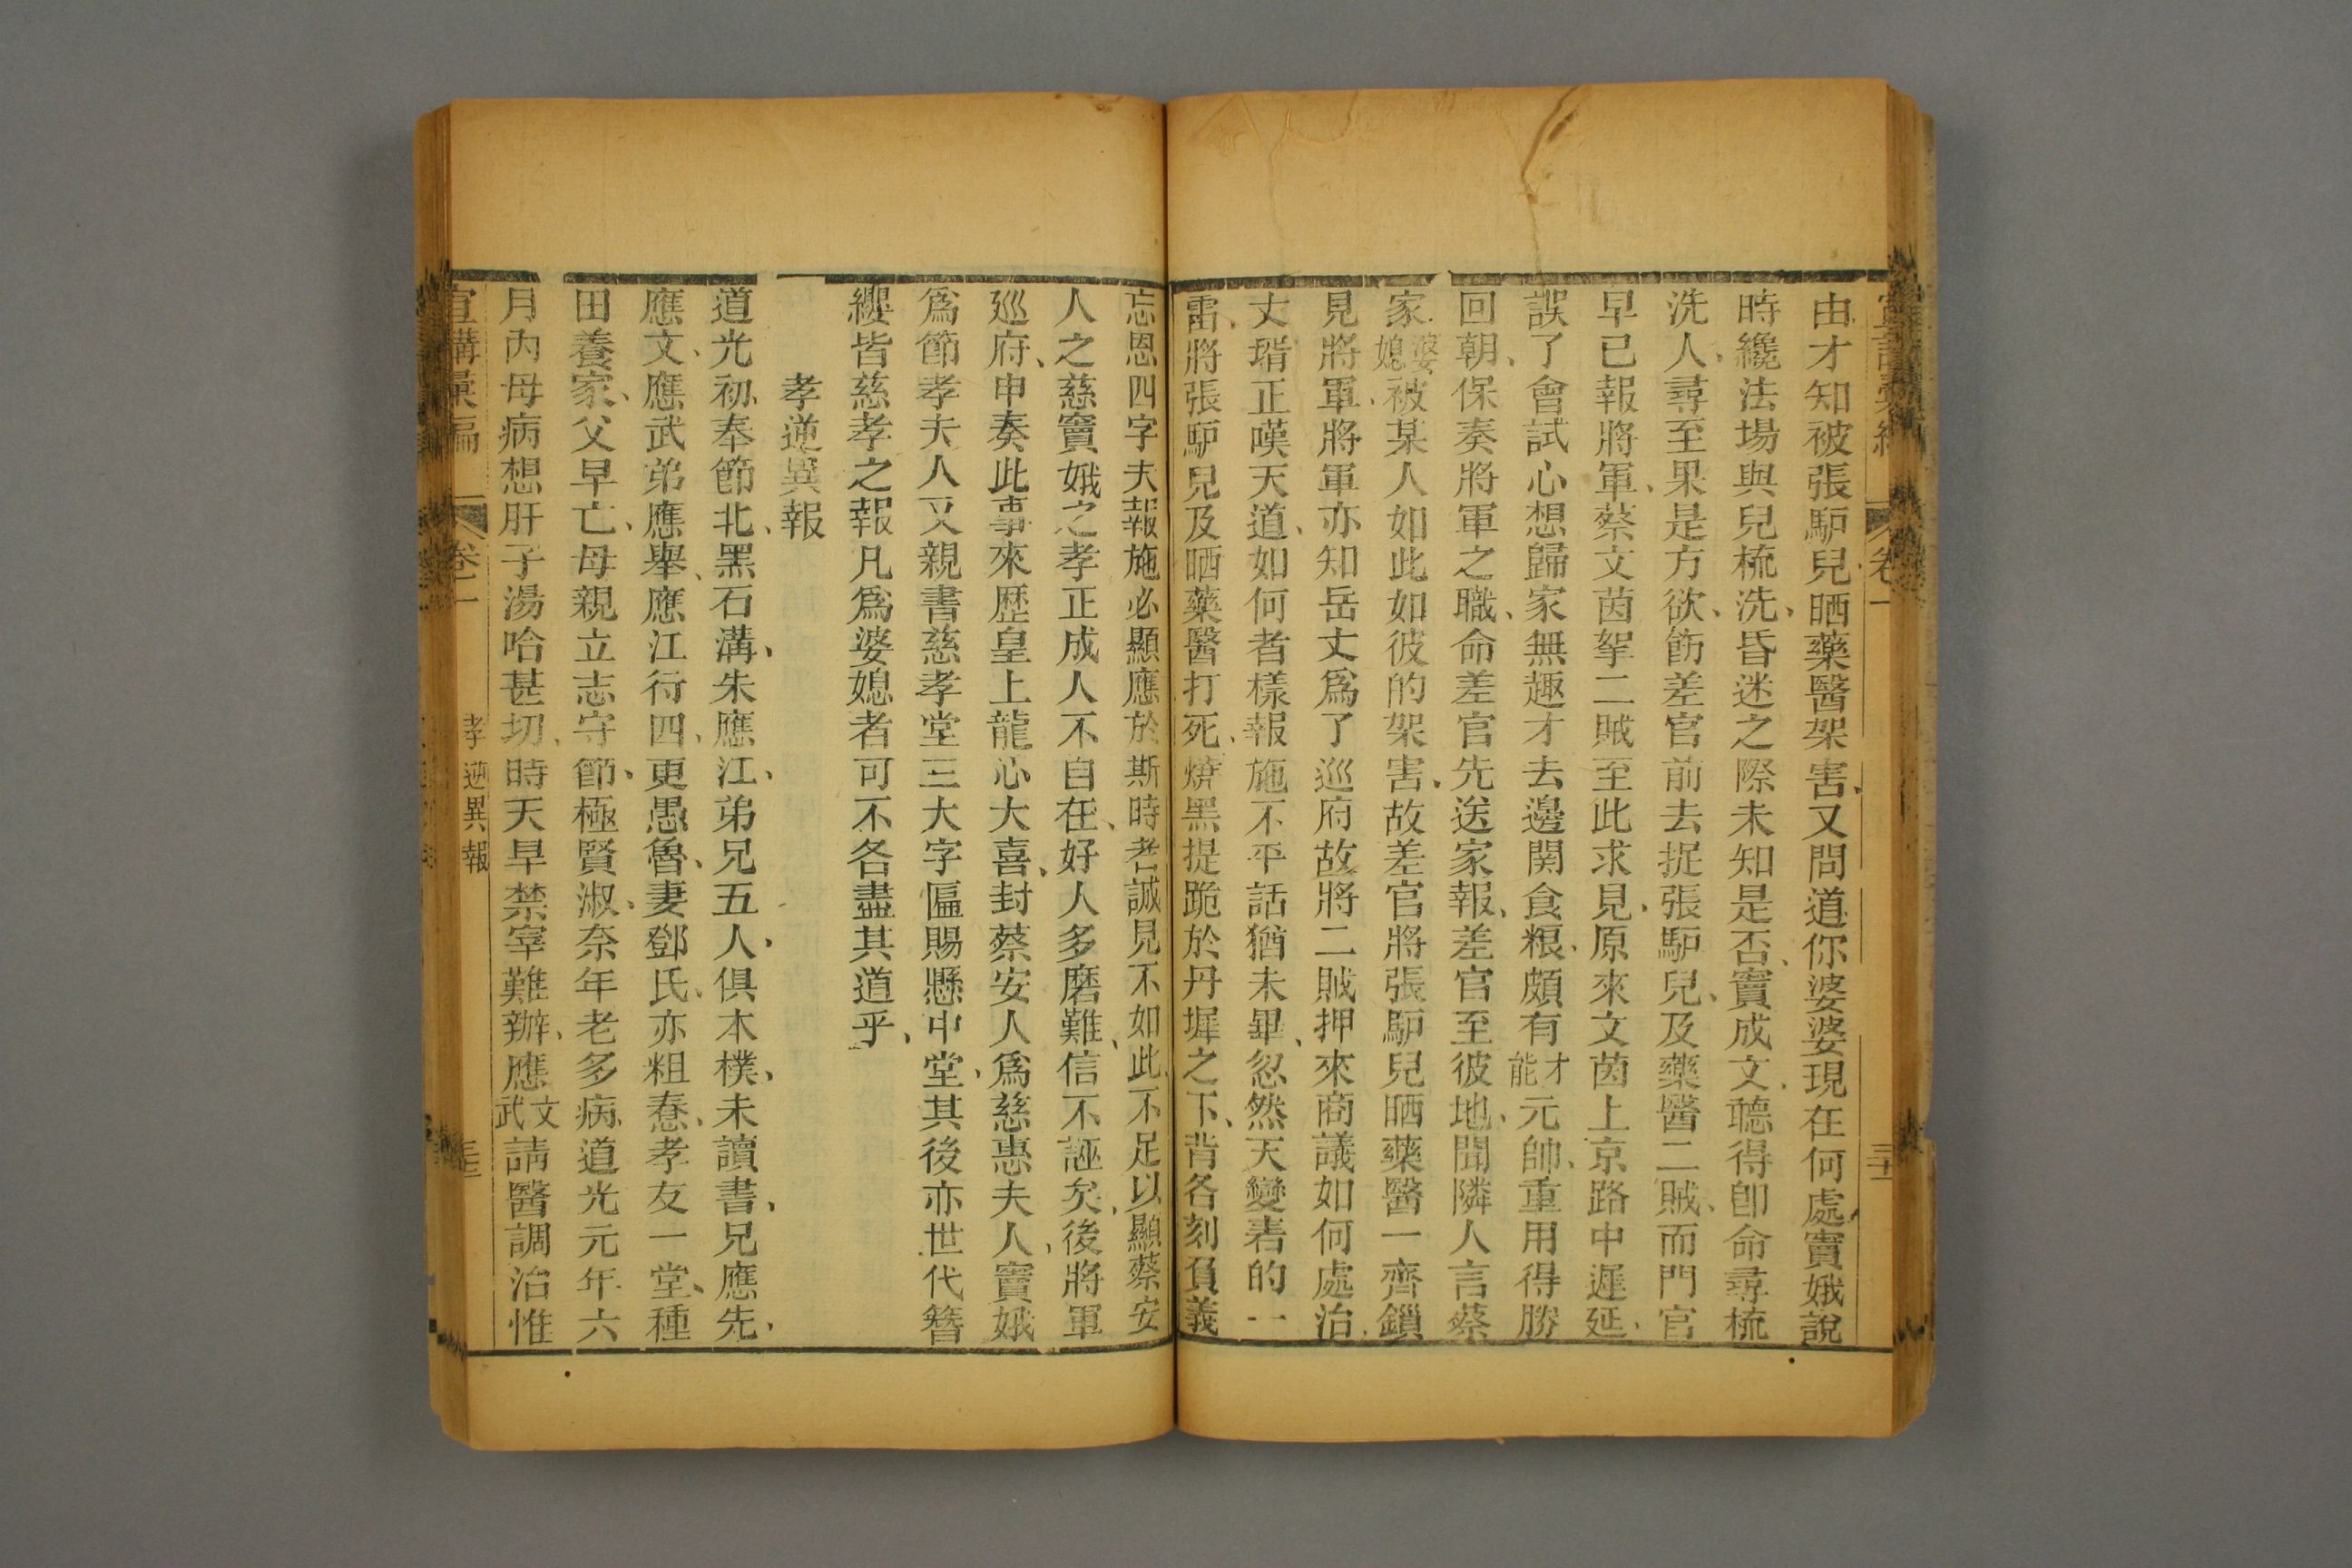 宣講彙編 卷一
由才知被張馿兒晒藥醫架害、又問道你婆婆現在何處、竇娥說
時纔法場與兒梳洗、昏迷之際未知是否、竇成文、聽得卽命尋梳
洗人、尋至果是方欲、飭差官前去捉張馿兒、及藥醫二賊、而門官
早已報將軍、蔡文茵拏二賊至此求見、原來文茵上京路中遲延、
誤了會試心想歸家無趣才去邊関食粮、頗有才能元帥、重用得勝
回朝、保奏將軍之職、命差官先送家報、差官至彼地、聞隣人言蔡
家婆媳被某人如此如彼的架害、故差官將張馿兒晒藥醫一齊鎖
見將軍、將軍亦知岳丈爲了巡府故將二賊押來商議如何處治、
丈壻正嘆天道、如何者樣報施不平話猶未畢、忽然天變着的一
雷、將張馿兒及晒藥醫打死、燒黑提跪於丹墀之下、背各刻負義
忘恩四字夫報施必顯應於斯時者誠見不如此、不足以顯蔡安
人之慈竇娥之孝正成人不自在、好人多磨難、信不誣矣、後將軍
巡府、申奏此事來歷皇上龍心大喜、封蔡安人爲慈惠夫人、竇娥
爲節孝夫人又親書慈孝堂三大字匾賜懸中堂、其後亦世代簪
纓皆慈孝之報凡爲婆媳者可不各盡其道乎、
孝逆異報
道光初奉節北、黑石溝、朱應江、弟兄五人、俱本樸、未讀書、兄應先、
應文、應武弟應舉、應江行四、更愚魯、妻鄧氏、亦粗惷、孝友一堂、種
田養家、父早亡、母親立志守節、極賢淑、奈年老多病、道光元年六
月內母病想肝子湯哈甚切、時天旱禁宰難辦、應文武請醫調治惟
宣講彙編 卷一 孝逆異報